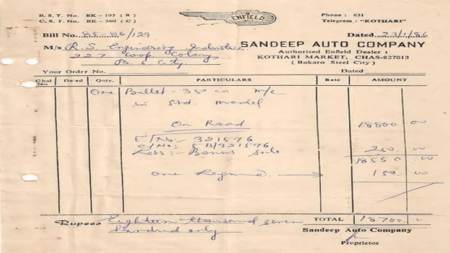 B.S.T. No. BK-197 (R)
C.S.T. No. BK-340 (C)
ENFIELD
Phone : 631
Telegram : "KOTHARI"
Bill No. 85-86/129
Dated 23/1/86
M/s R.S. Engineering Industries
227 Coop. Colony
B.S. City
SANDEEP AUTO COMPANY
Authorised Enfield Dealer
KOTHARI MARKET, CHAS-827013
(Bokaro Steel City)
Your Order No. Dated
Chal No Dated Qnty. PARTICULARS Rate AMOUNT
One Bullet - 350 cc M/C
Std. Model
On Road 18800 00
E/No: 321576
C/No: 5B/321576
Less: Bonus 250 00
18550 00
One 150 00
Rupees Eighteen thousand seven TOTAL 18700
hundred only
Sandeep Auto Company
Proprietor